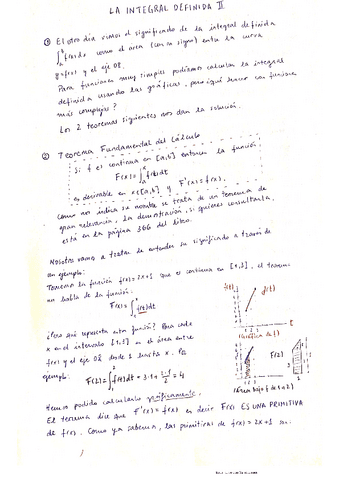 LA INTEGRAL DEFINIDA II
① El otro día vimos el significado de la integral definida
∫ₐᵇ f(x)dx como el área (con su signo) entre la curva
y=f(x) y el eje OX.
Para funciones muy simples podíamos calcular la integral
definida usando las gráficas, para qué hacer con funciones
más complejas?
Los 2 teoremas siguientes nos dan la solución.
② Teorema Fundamental del Cálculo
Si f es continua en [a,b] entonces la función
F(x) = ∫ₐˣ f(t)dt
es derivable en x∈[a,b] y F'(x) = f(x).
Como nos indica su nombre se trata de un teorema de
gran relevancia, la demostración, si quieres consultarla,
está en la página 366 del libro.
Nosotros vamos a tratar de entender su significado a través de
un ejemplo:
Tomemos la función f(x)=2x+1 que es continua en [1,3], el teorema
nos habla de la función:
F(x) = ∫₁ˣ f(t)dt
¿Pero qué representa esta función? Para cada
x en el intervalo [1,3] es el área entre
f(x) y el eje OX desde 1 hasta x. Por
ejemplo:
F(2) = ∫₁² f(t)dt = 3·1 + = 4
f(t)
f(t)
t
(Gráfica de f)
F(2)
(Área bajo f de 1 a 2)
Hemos podido calcularlo gráficamente.
El teorema dice que F'(x) = f(x) es decir F(x) ES UNA PRIMITIVA
de f(x). Como ya sabemos, las primitivas de f(x) = 2x+1 son: